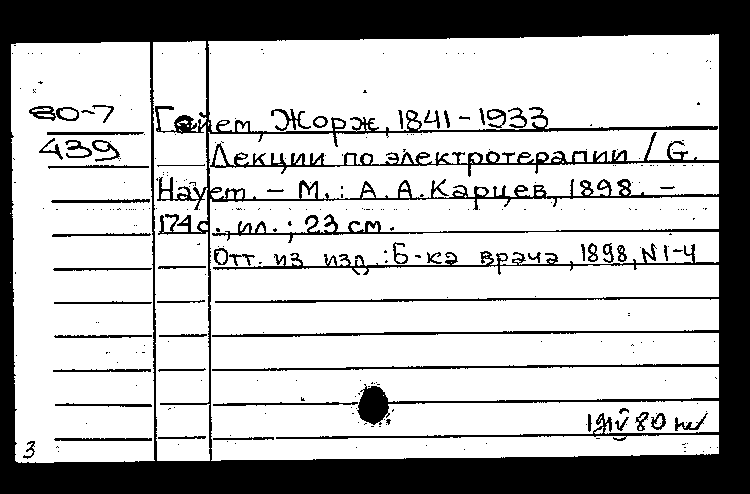 80-7
439
Гейем, Жорж, 1841-1933
Лекции по электротерапии / G.
Hayem. - М. : А. А. Карцев, 1898. -
174 с., ил. ; 23 см.
Отт. из изд.: Б-ка врача, 1898, N 1-4
80
3